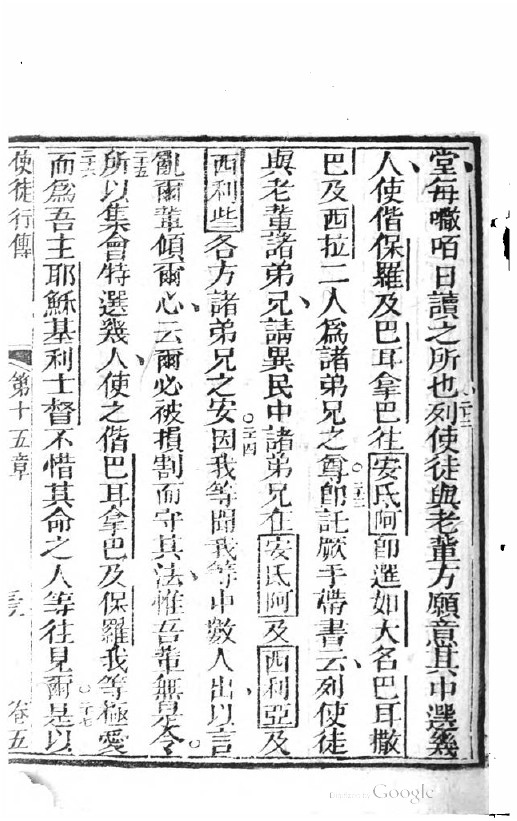 堂每嗽咟日讀之所也二十二列使徒與老輩方願意其中選幾
人使偕保羅及巴耳拿巴往安氐阿卽選如大名巴耳撒
巴及西拉二人爲諸弟兄之尊二十三卽託厥手帶書云列使徒
與老輩諸弟兄請異民中諸弟兄在安氐阿及西利亞及
西利些各方諸弟兄之安二十四因我等聞我等中數人出以言
亂爾輩傾爾心云爾必被損割而守其法惟吾輩無是令
二十五所以集會特選幾人使之偕巴耳拿巴及保羅我等極愛
二十六而爲吾主耶穌基利士督不惜其命之人等二十七往見爾是以
使徒行傳 第十五章 卷五
Digitized by Google